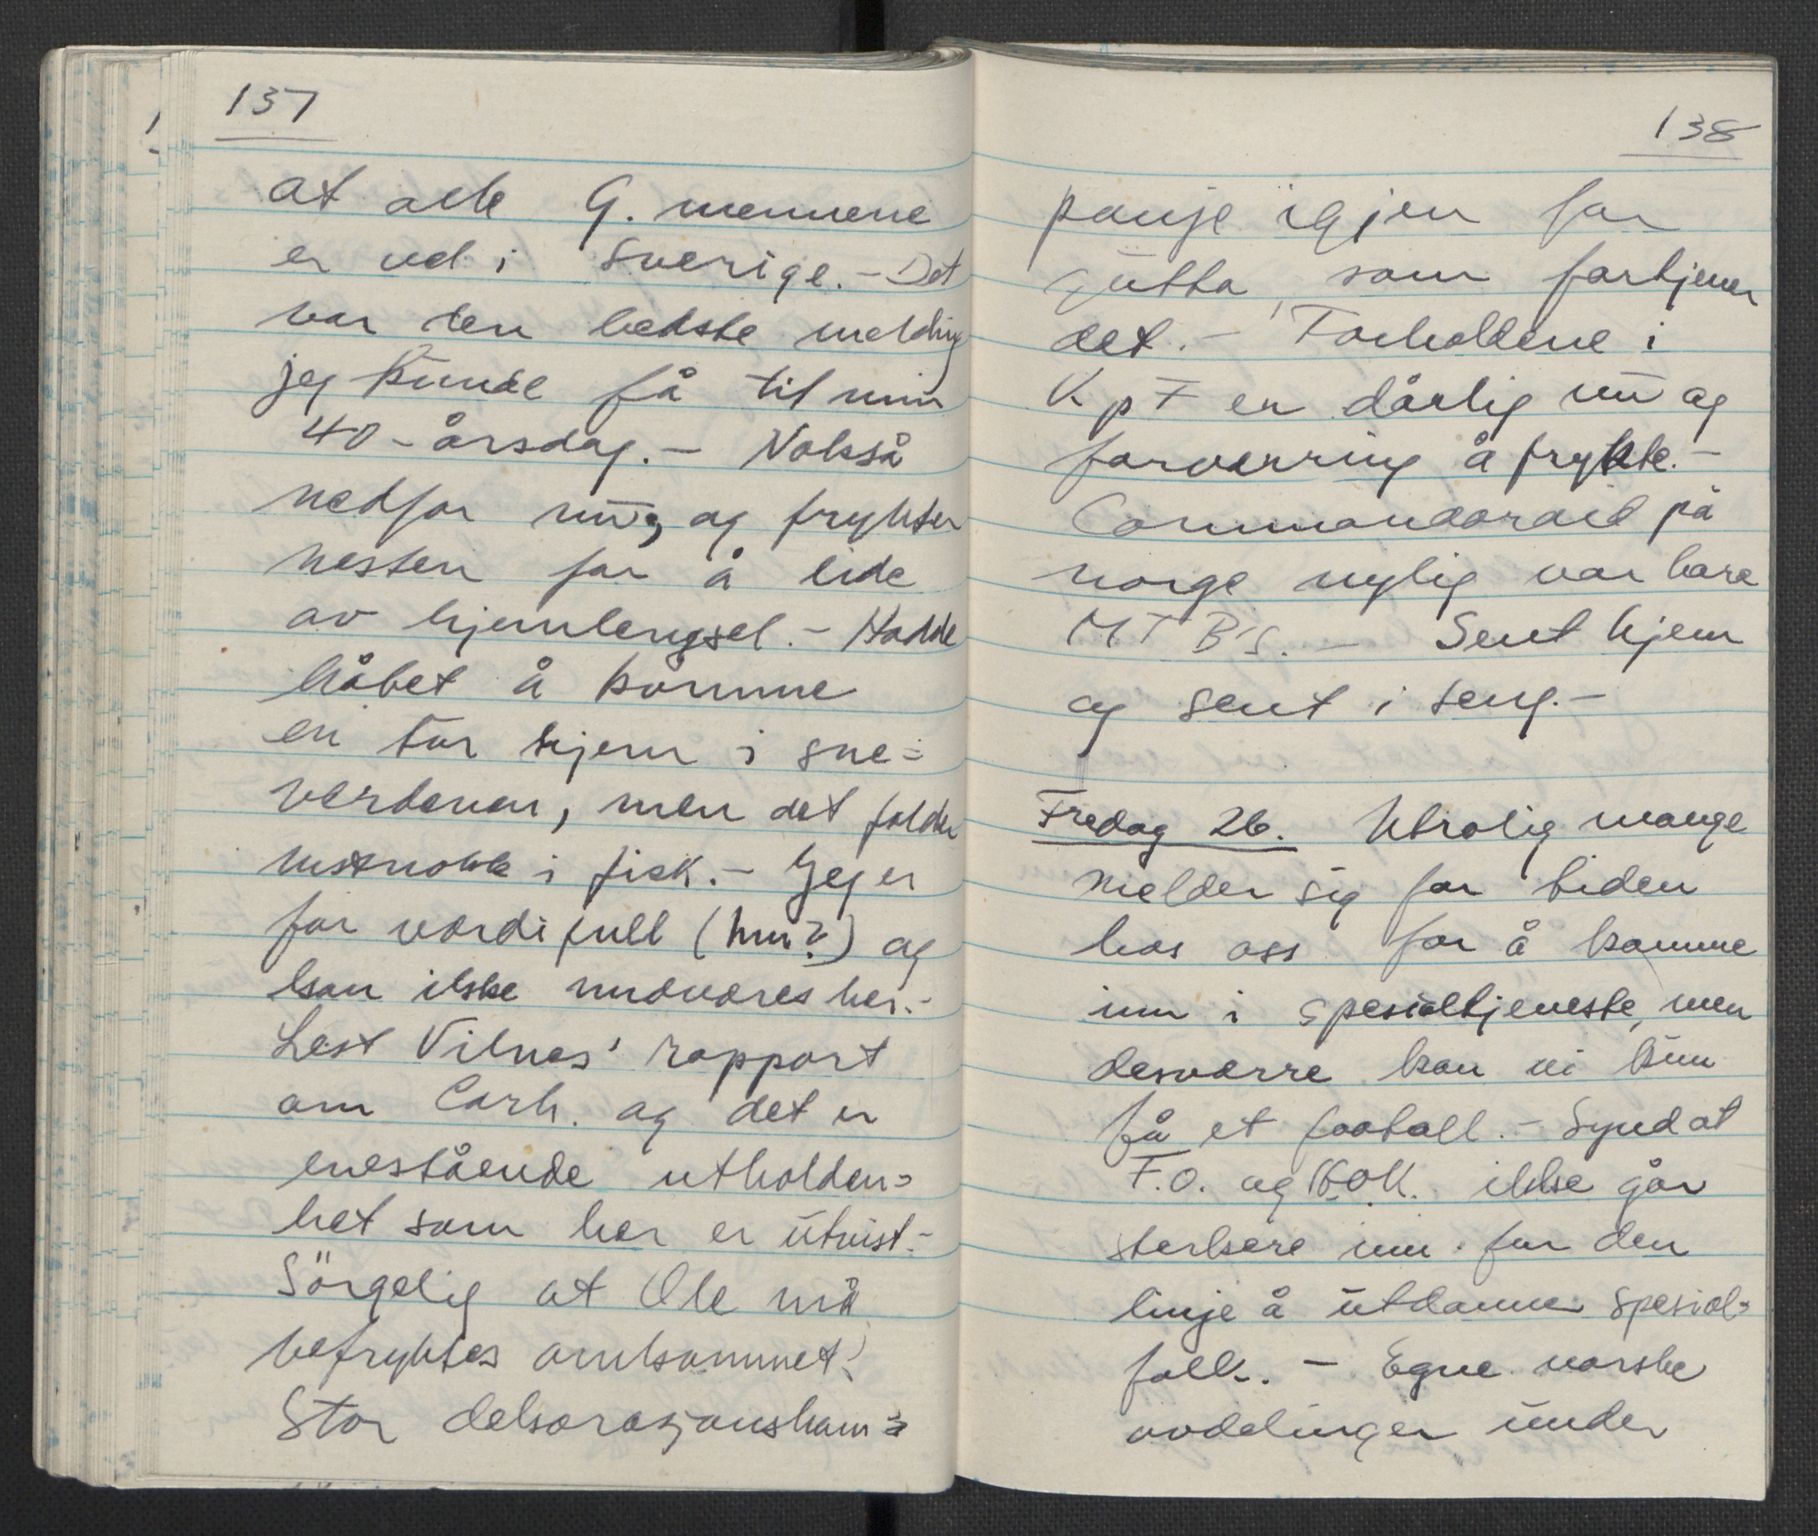 137
at alle G. mennene
er vel i Sverige. - Det
var den bedste melding
jeg kunde få til min
40-årsdag. - Nokså
nedfor nu, og frykter
nesten for å lide
av hjemlengsel. - Hadde
håbet å komme
en tur hjem i sne=
verdenen, men det falder
nistnokk i fisk. - Jeg er
for værdifull (hm?) og
kan ikke undværes her. -
Lest Vilnes' rapport
om Carh. og det er
enestående utholden=
het som her er utvist. -
Sörgelig at Ole må
befryktes omkommet.
Stor dekorasjonskam=
138
panje igjen for
gutta, som fortjener
det. - Forholdene i
KpF er dårlig nu og
forverring å frykte. -
Commandoraid på
norge nylig var bare
MTB's. - Sent hjem
og sent i seng. -
Fredag 26. Utrolig mange
melder sig for tiden
hos oss for å komme
inn i spesialtjeneste, men
desværre kan vi kun
få et faatall. - Synd at
F.O. og HOK. ikke går
sterkere inn for den
linje å utdanne spesial=
folk. - Egne norske
avdelinger under